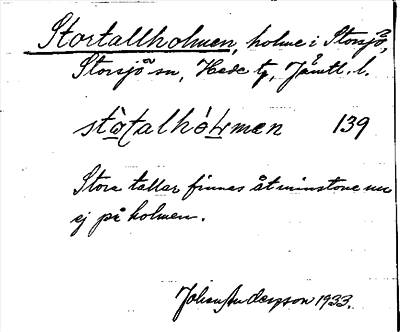 Stortallholmen, holme i Storsjö,
Storsjö sn, Hede tg, Jämtl. l.
139
Stora tallar finnas åtminstone nu
ej på holmen.
Johan Anderson 1933.